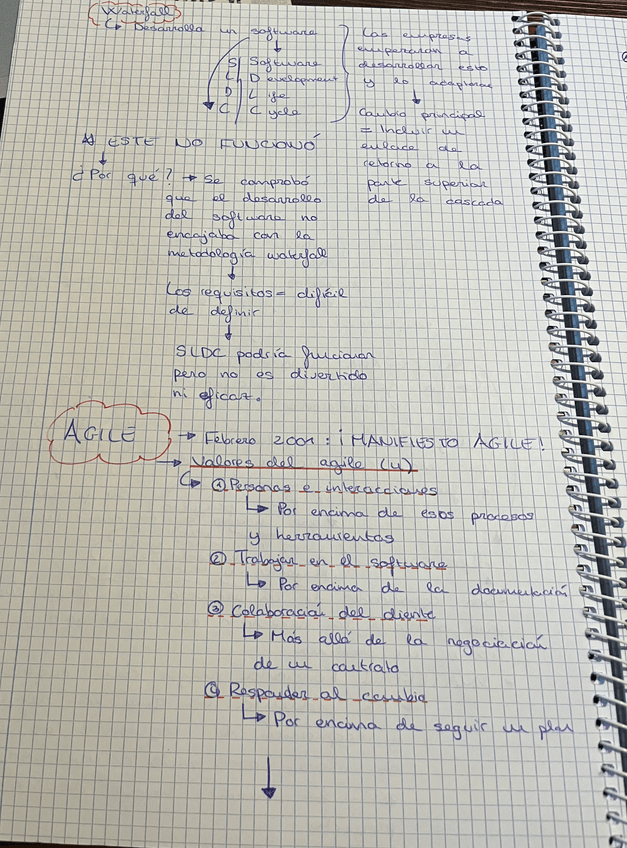 Waterfall
↳ Desarrolla un software
S Software
L D evelopment
D L ife
C C ycle
Las empresas
empezaron a
desarrollar esto
y lo adaptaron
Cambio principal
= Incluir un
enlace de
retorno a la
parte superior
de la cascada
ESTE NO FUNCIONÓ
¿Por qué? → Se comprobó
que el desarrollo
del software no
encajaba con la
metodología waterfall
Los requisitos = difícil
de definir
SLDC podría funcionar
pero no es divertido
ni eficaz.
AGILE
→ Febrero 2001: ¡MANIFIESTO AGILE!
→ Valores del agile (4)
↳ ① Personas e interacciones
↳ Por encima de esos procesos
y herramientas
② Trabajar en el software
↳ Por encima de la documentación
③ Colaboración del cliente
↳ Más allá de la negociación
de un contrato
④ Responder al cambio
↳ Por encima de seguir un plan